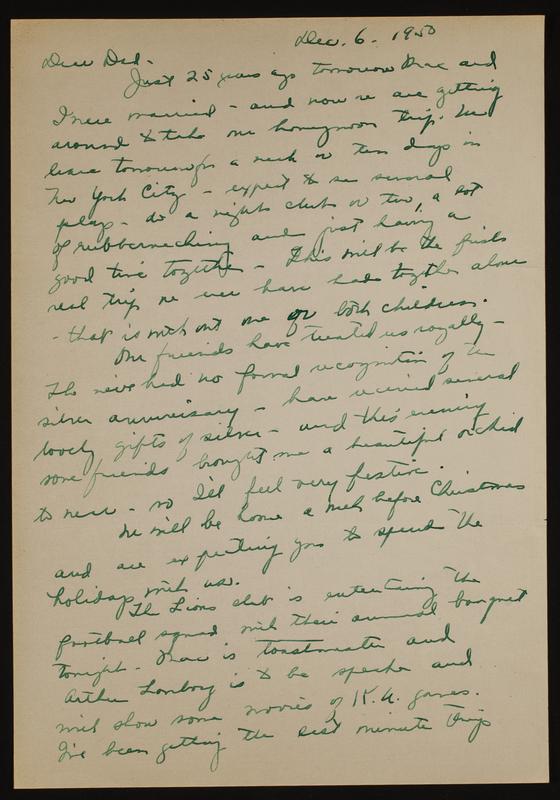 Dec. 6 - 1950
Dear Dad -
Just 25 years ago tomorrow Mac and
I were married - and now we are getting
around to take our honeymoon trip. We
leave tomorrow for a week or ten days in
New York City - expect to see several
plays - do a night club or two, a lot
of rubbernecking and just having a
good time together - This will be the first
real trip we ever have had together alone
- that is without one or both children.
Our friends have treated us royally -
Tho we've had no formal recognition of the
silver anniversary - have received several
lovely gifts of silver - and this evening
some friends brought me a beautiful orchid
to wear - so I'll feel very festive.
We will be home a week before Christmas
and are expecting you to spend the
holidays with us.
The Lions club is entertaining the
football squad with their annual banquet
tonight. Mac is toastmaster and
Arthur Lonborg is to be speaker and
will show some movies of K.U. games.
I've been getting the last minute things